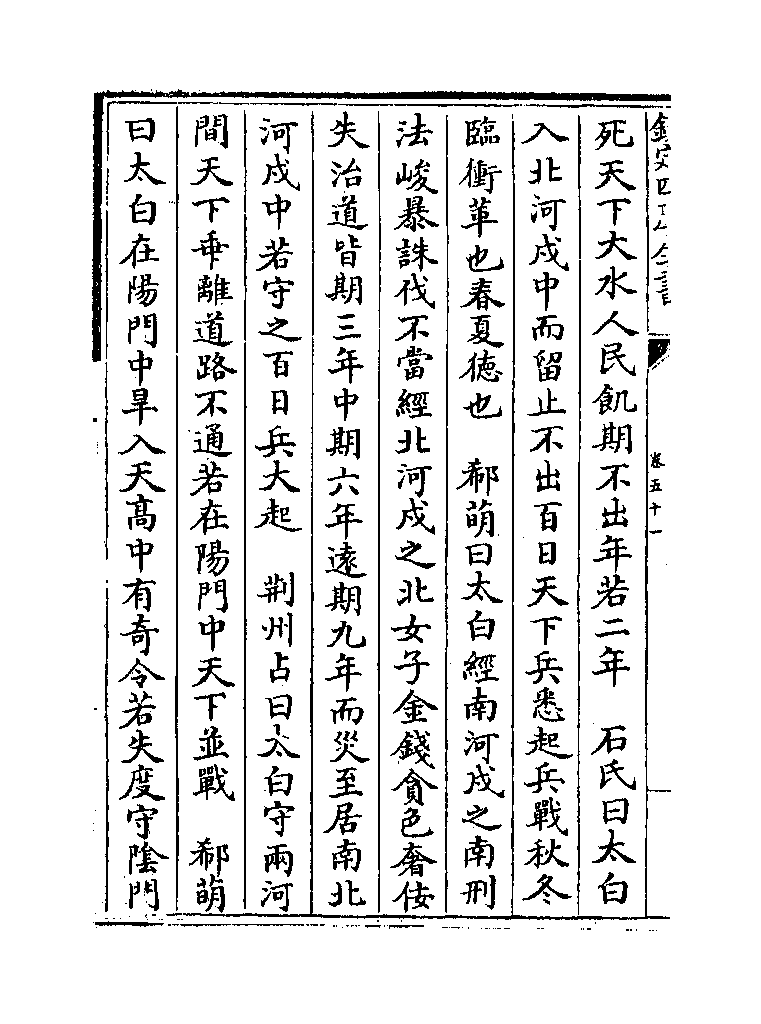 欽定四庫全書
卷五十一
死天下大水人民飢期不出年若二年　石氏曰太白
入北河戍中而留止不出百日天下兵悉起兵戰秋冬
臨衝革也春夏德也　郗萌曰太白經南河戍之南刑
法峻暴誅伐不當經北河戍之北女子金錢貪色奢佞
失治道皆期三年中期六年遠期九年而災至居南北
河戍中若守之百日兵大起　荆州占曰太白守兩河
間天下乖離道路不通若在陽門中天下並戰　郗萌
曰太白在陽門中旱入天高中有奇令若失度守隂門